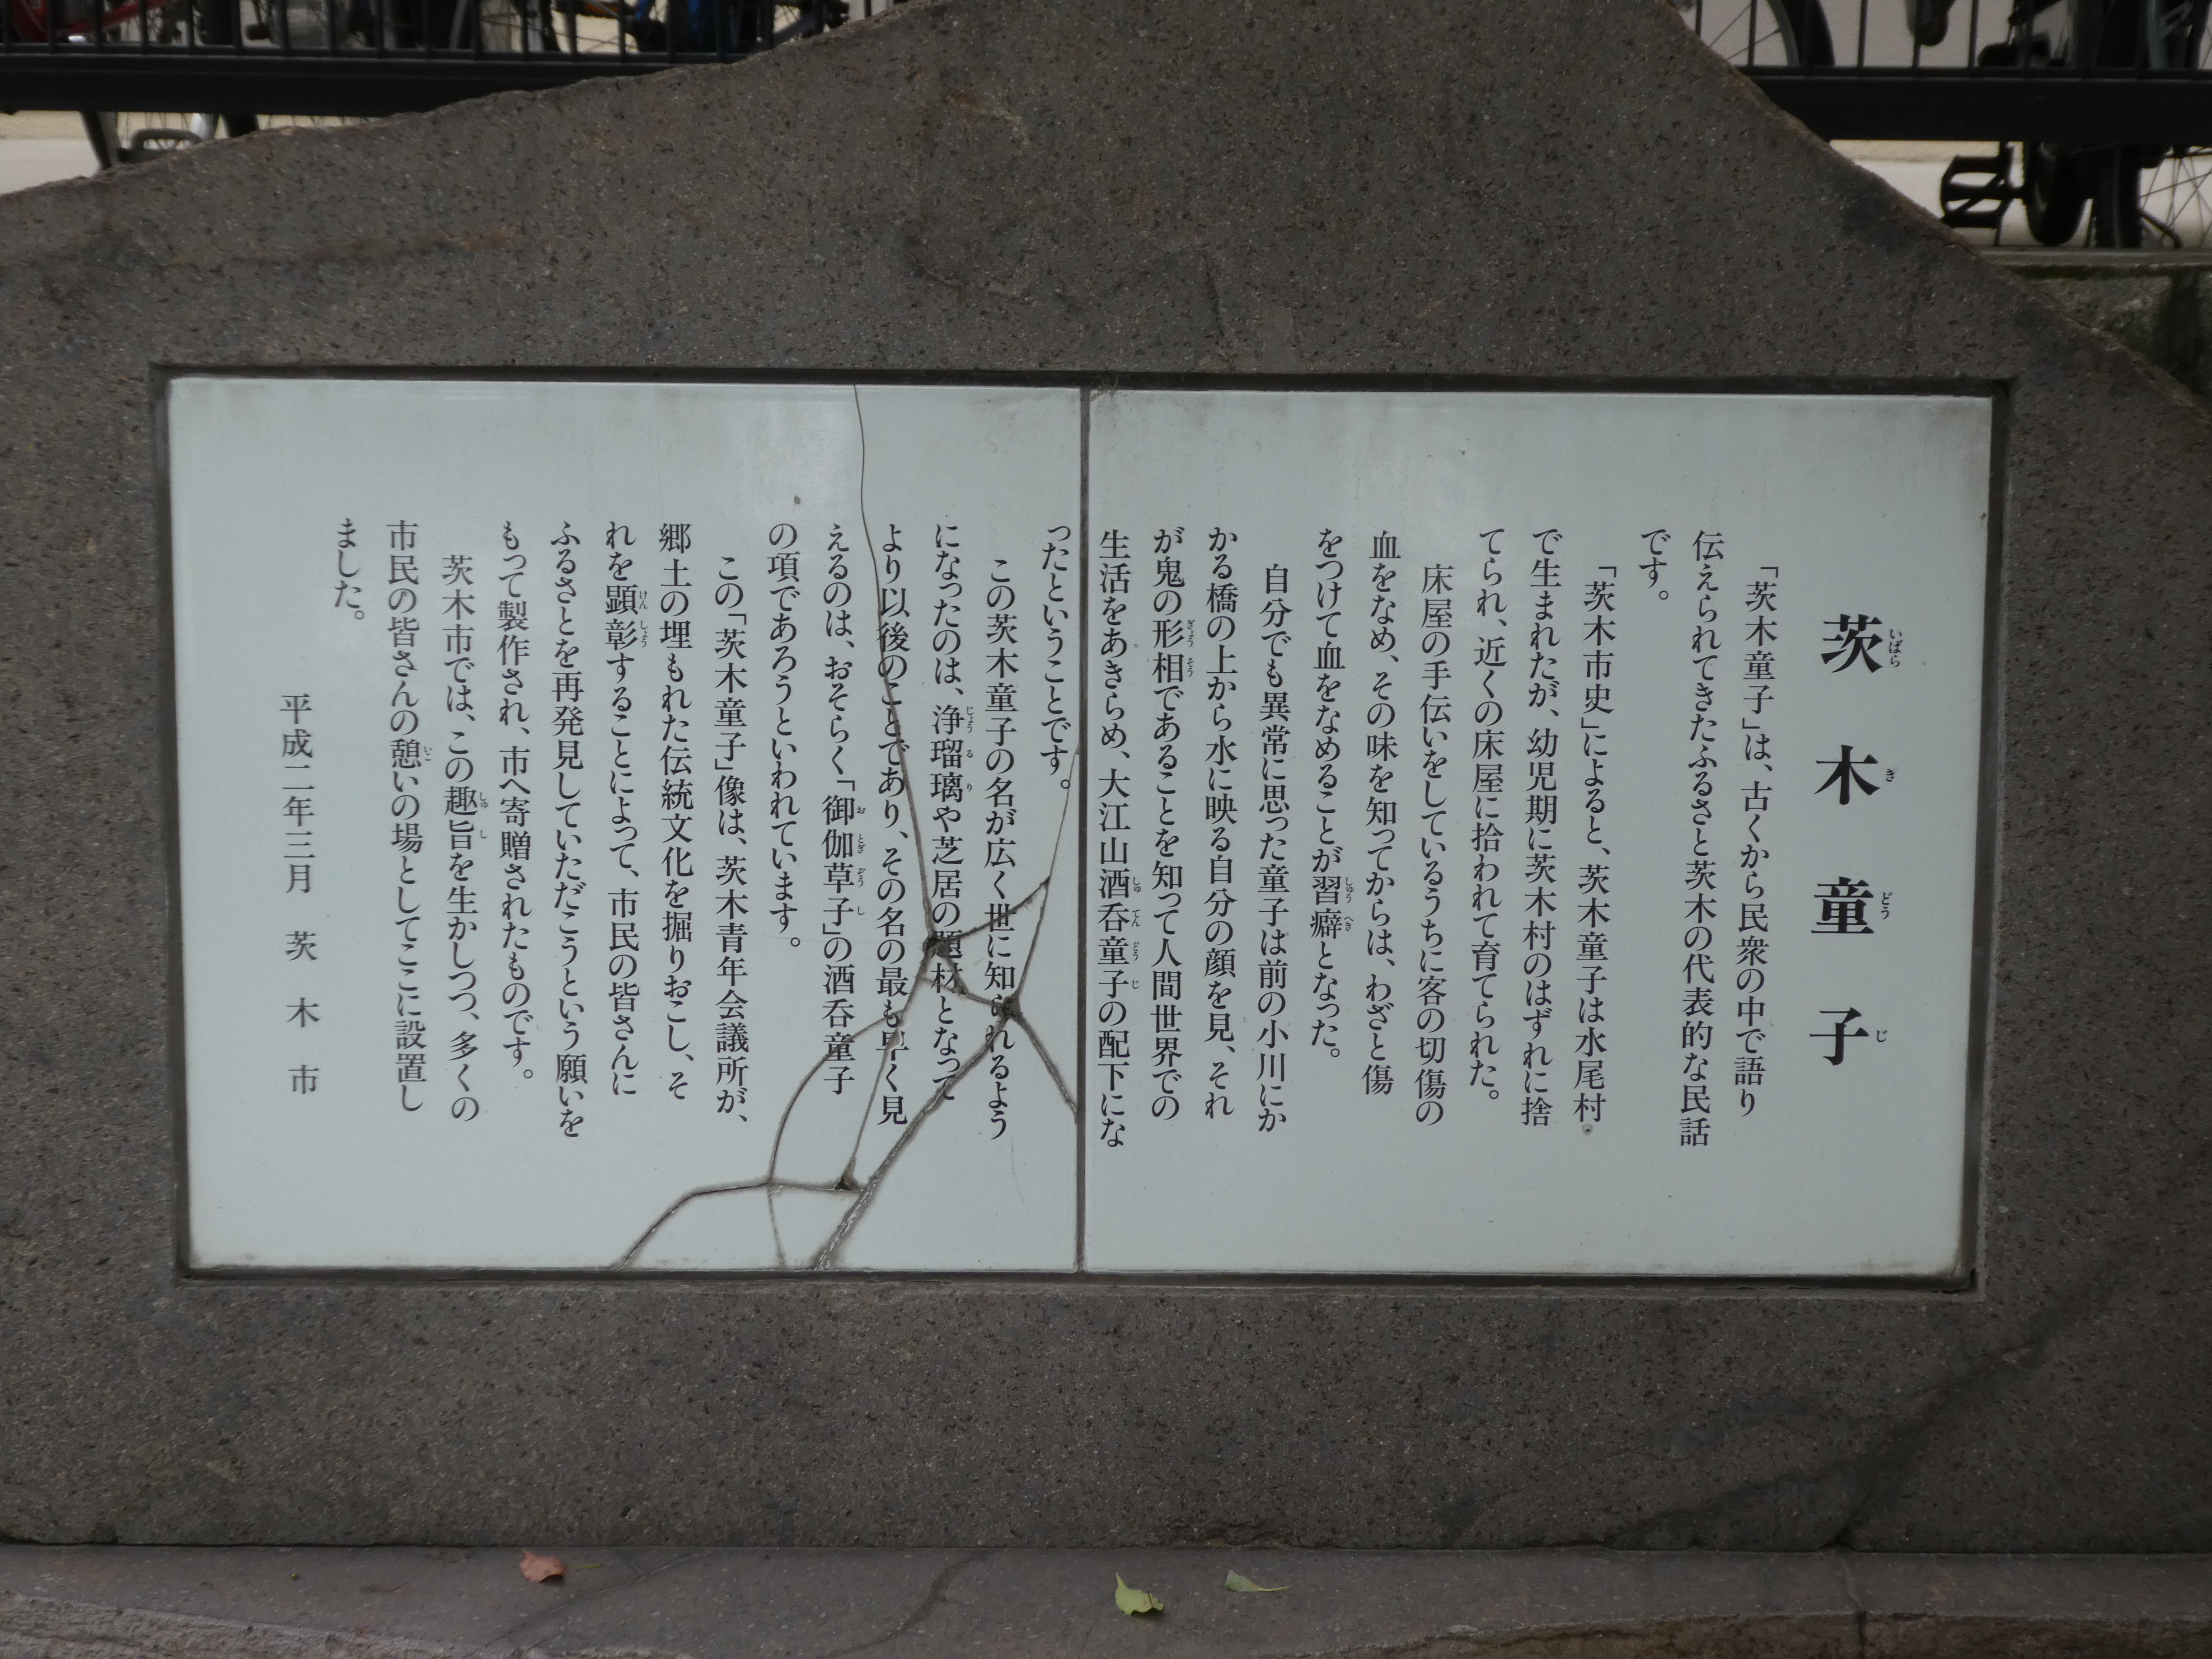 茨木童子
「茨木童子」は、古くから民衆の中で語り
伝えられてきたふるさと茨木の代表的な民話
です。
「茨木市史」によると、茨木童子は水尾村
で生まれたが、幼児期に茨木村のはずれに捨
てられ、近くの床屋に拾われて育てられた。
床屋の手伝いをしているうちに客の切傷の
血をなめ、その味を知ってからは、わざと傷
をつけて血をなめることが習癖となった。
自分でも異常に思った童子は前の小川にか
かる橋の上から水に映る自分の顔を見、それ
が鬼の形相であることを知って人間世界での
生活をあきらめ、大江山酒呑童子の配下にな
ったということです。
この茨木童子の名が広く世に知られるよう
になったのは、浄瑠璃や芝居の題材となって
より以後のことであり、その名の最も早く見
えるのは、おそらく「御伽草子」の酒呑童子
の項であろうといわれています。
この「茨木童子」像は、茨木青年会議所が、
郷土の埋もれた伝統文化を掘りおこし、そ
れを顕彰することによって、市民の皆さんに
ふるさとを再発見していただこうという願いを
もって製作され、市へ寄贈されたものです。
茨木市では、この趣旨を生かしつつ、多くの
市民の皆さんの憩いの場としてここに設置し
ました。
平成二年三月 茨木市